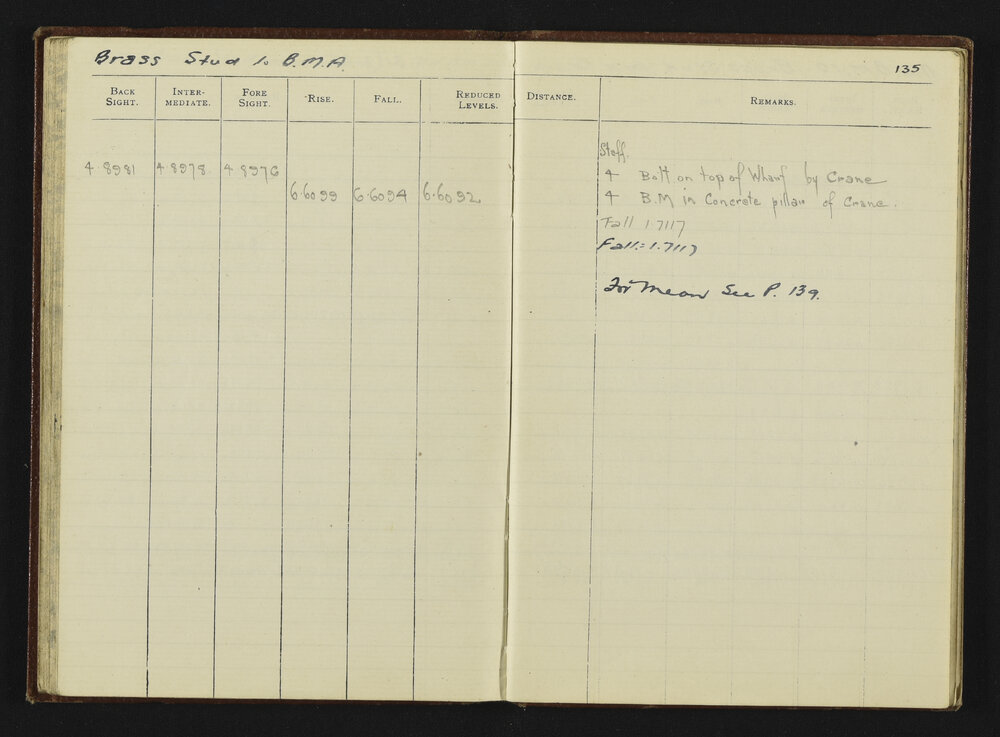 Brass Stud to B.M.A.
135
BACK SIGHT. INTER-MEDIATE. FORE SIGHT. RISE. FALL. REDUCED LEVELS. DISTANCE. REMARKS.
Staff.
4.8981 4.8978 4.8976 4 Bolt on top of Wharf by Crane
6.6099 6.6094 6.6092 4 B.M in Concrete pillar of Crane.
Fall 1.7117
Fall = 1.7117
For Mean See P. 139.